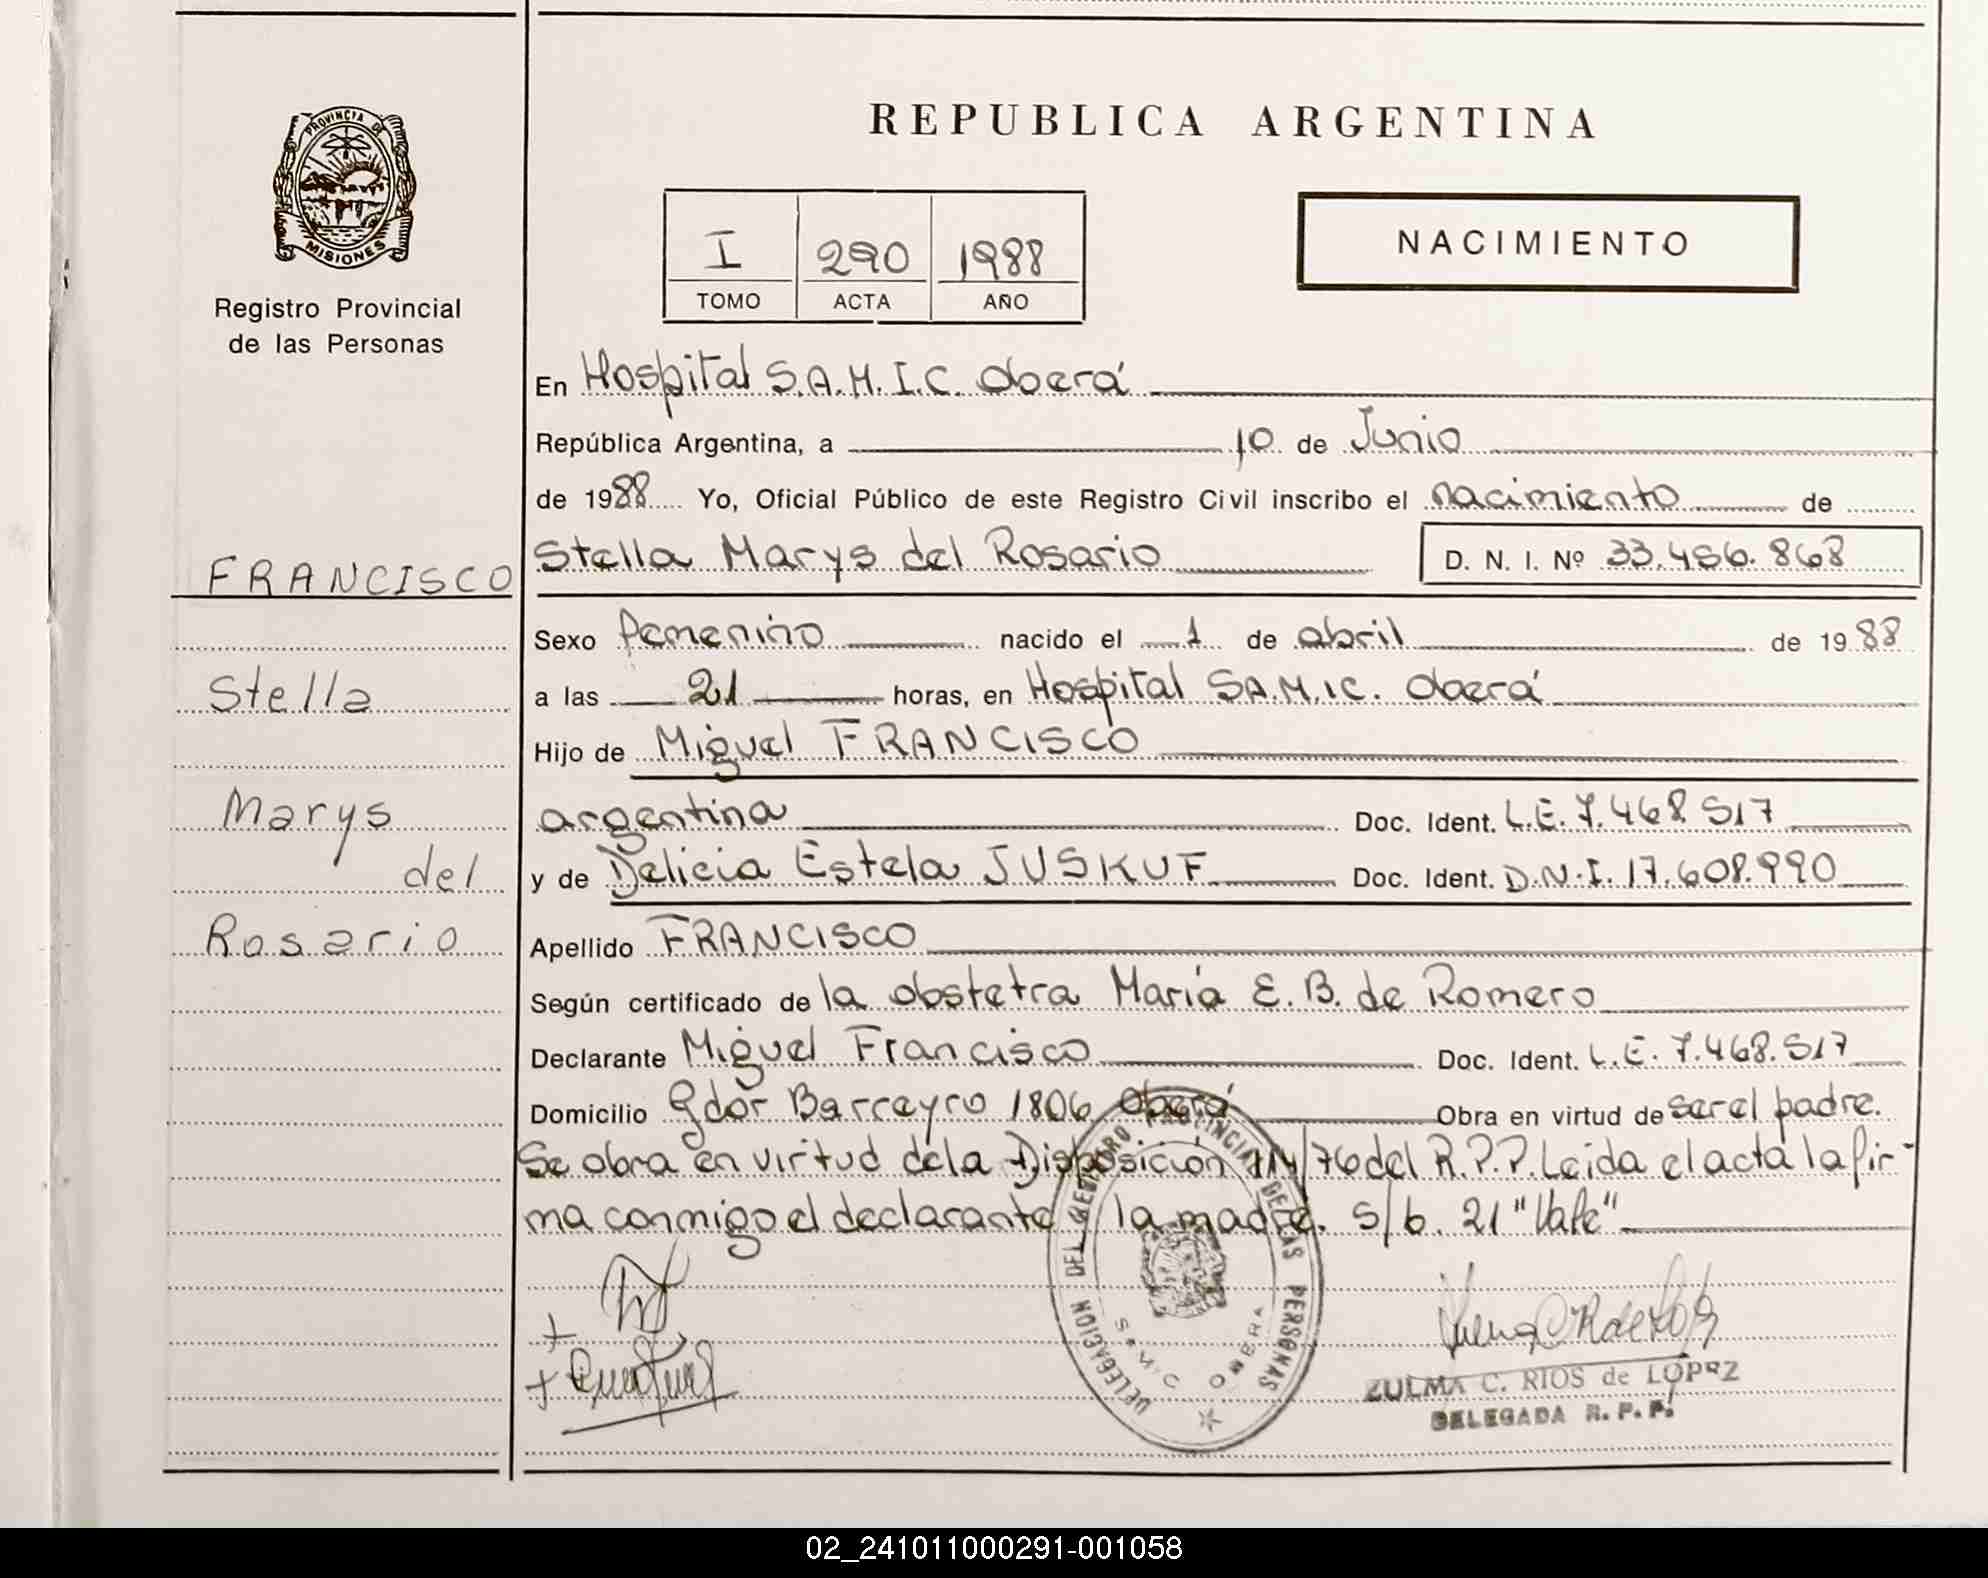 REPUBLICA ARGENTINA
PROVINCIA DE MISIONES
Registro Provincial
de las Personas
I 290 1988
TOMO ACTA AÑO
NACIMIENTO
En Hospital S.A.M.I.C. Oberá
República Argentina, a 10 de Junio
de 1988 Yo, Oficial Público de este Registro Civil inscribo el nacimiento de
Stella Marys del Rosario D. N. I. Nº 33.456.868
Sexo femenino nacido el 1 de abril de 1988
a las 21 horas, en Hospital S.A.M.I.C. Oberá
Hijo de Miguel FRANCISCO
argentina Doc. Ident. L.E. 7.468 517
y de Delicia Estela JUSKUF Doc. Ident. D.N.I. 17.608.990
Apellido FRANCISCO
Según certificado de la obstetra María E. B. de Romero
Declarante Miguel Francisco Doc. Ident. L.E. 7.468.517
Domicilio Gdor Barreyro 1806 Oberá Obra en virtud de ser el padre.
Se obra en virtud de la Disposición 114/76 del R.P.P. Leida el acta la fir-
ma conmigo el declarante y la madre. s/b. 21 "Vale"
FRANCISCO
Stella
Marys
del
Rosario
DELEGACION DEL REGISTRO PROVINCIAL DE LAS PERSONAS
S.A.M.I.C. OBERA
ZULMA C. RIOS de LOPEZ
DELEGADA R. P. P.
02_241011000291-001058